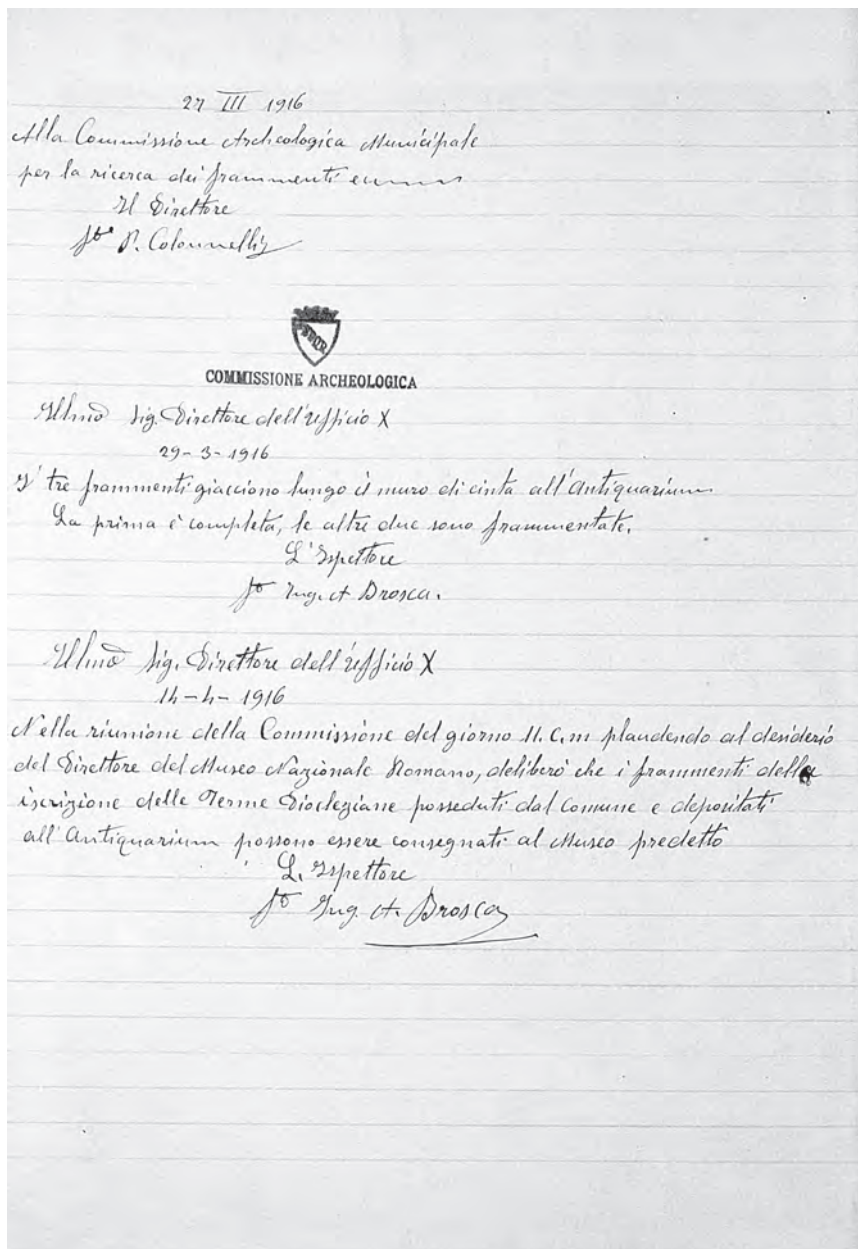 27 III 1916
Alla Commissione Archeologica Municipale
per la ricerca dei frammenti
Il Direttore
fto P. Colonnelli
SPQR
COMMISSIONE ARCHEOLOGICA
Illmo Sig. Direttore dell'Ufficio X
29-3-1916
I tre frammenti giacciono lungo il muro di cinta all'Antiquarium
La prima è completa, le altre due sono frammentate.
L'Ispettore
fto Ing. A Brosca.
Illmo Sig. Direttore dell'Ufficio X
14-4-1916
Nella riunione della Commissione del giorno 11. C.m plaudendo al desiderio
del Direttore del Museo Nazionale Romano, deliberò che i frammenti della
iscrizione delle Terme Dioclegiane posseduti dal comune e depositati
all'Antiquarium possono essere consegnati al Museo predetto
L. Ispettore
fto Ing. A. Brosca